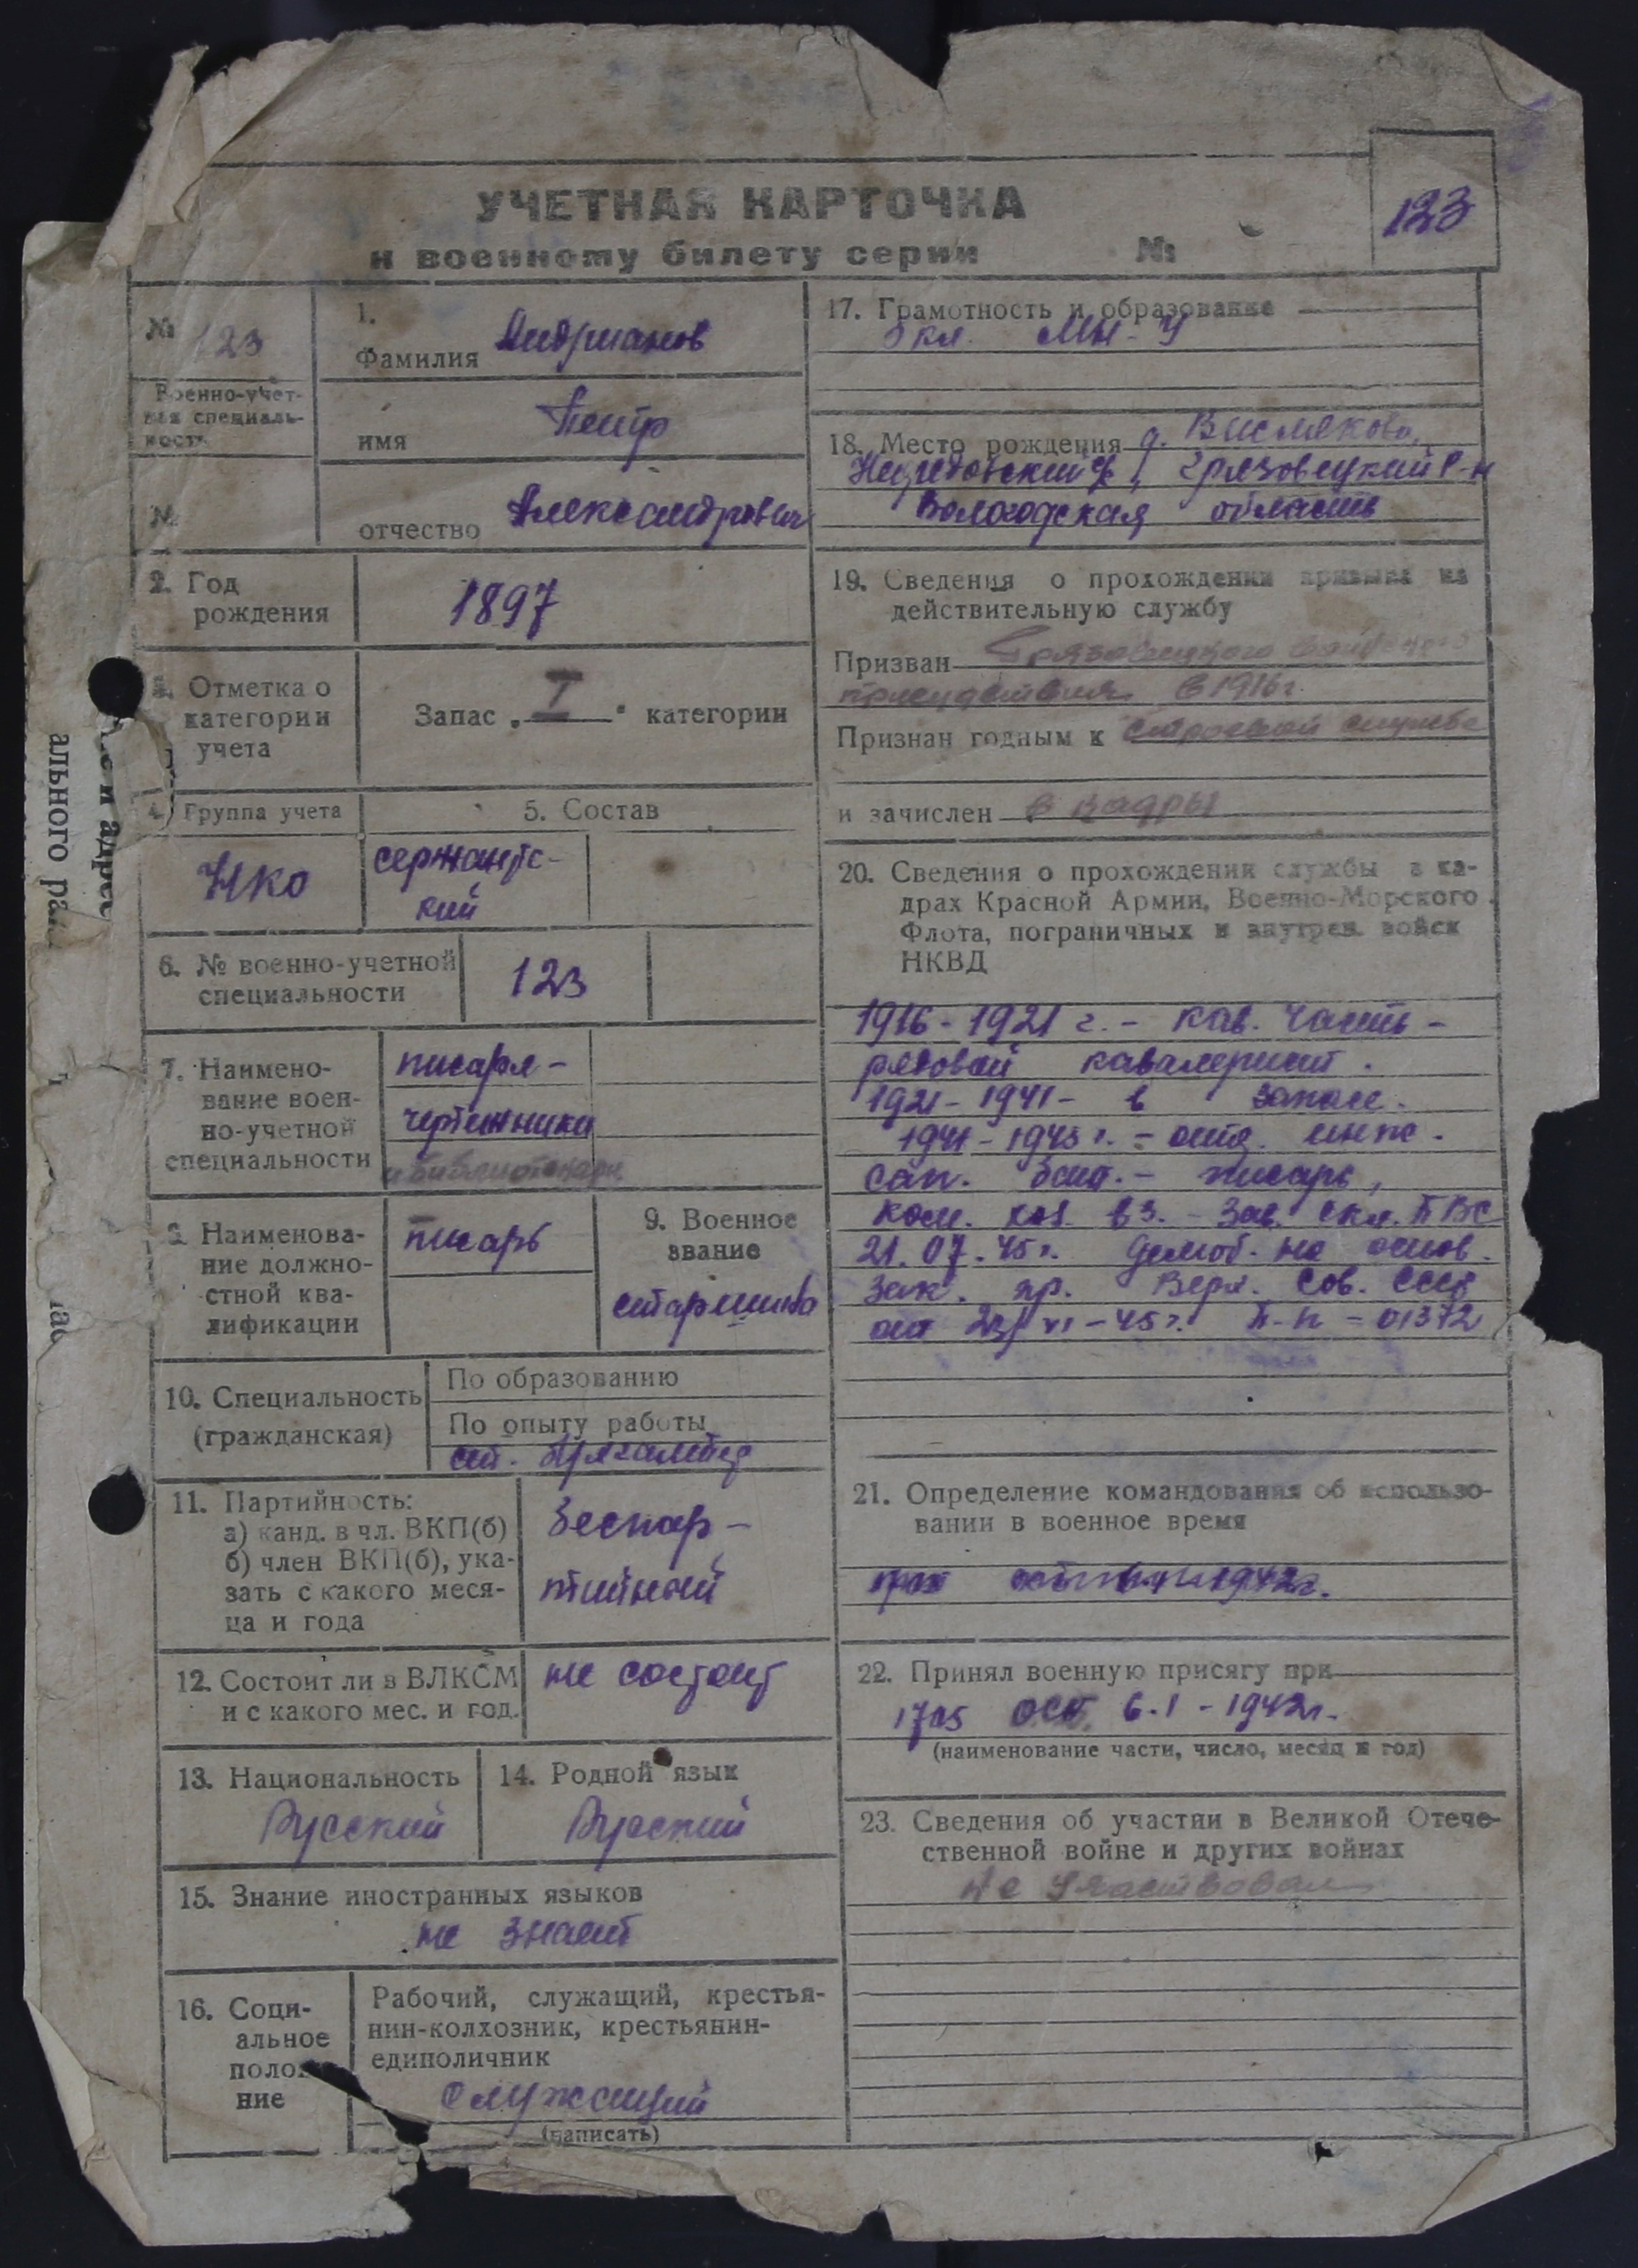 УЧЕТНАЯ КАРТОЧКА
к военному билету серии №
123
№ 123
Военно-учет-
ная специаль-
ность
№
1.
Фамилия Андрианов
имя Петр
отчество Александрович
2. Год
рождения
1897
Отметка о
категории
учета
Запас „ I " категории
4. Группа учета
5. Состав
НКО
сержантс-
кий
6. № военно-учетной
специальности
123
7. Наимено-
вание воен-
но-учетной
специальности
писаря-
чертежники
и библиотекари
Наименова-
ние должно-
стной ква-
лификации
писарь
9. Военное
звание
старшина
10. Специальность
(гражданская)
По образованию
По опыту работы
ст. бухгалтер
11. Партийность:
а) канд. в чл. ВКП(б)
б) член ВКП(б), ука-
зать с какого меся-
ца и года
беспар-
тийный
12. Состоит ли в ВЛКСМ
и с какого мес. и год.
не состоит
13. Национальность
Русский
14. Родной язык
Русский
15. Знание иностранных языков
не знает
16. Соци-
альное
положе
ние
Рабочий, служащий, крестья-
нин-колхозник, крестьянин-
единоличник
служащий
(написать)
17. Грамотность и образование
кл.
18. Место рождения д.
Грязовецкий р-н
Вологодская область
19. Сведения о прохождении призыва на
действительную службу
Призван Грязовецкого
присутствия в 1916 г.
Признан годным к строевой службе
и зачислен в кадры
20. Сведения о прохождении службы в ка-
драх Красной Армии, Военно-Морского
Флота, пограничных и внутрен. войск
НКВД
1916-1921 г. - кав. часть -
рядовой кавалерист.
1921-1941 - в запасе.
1941-1945 г. - отд. инже.
сап. бат. - писарь,
ком. хоз. вз. - Зав. скл. ПВС
21.07.45 г. демоб. на основ.
Зак. пр. Верх. Сов. СССР
от 23/VI-45 г. П-П-01372
21. Определение командования об использо-
вании в военное время
1942г.
22. Принял военную присягу при
1705 ОСБ 6.1-1942г.
(наименование части, число, месяц и год)
23. Сведения об участии в Великой Отече-
ственной войне и других войнах
не участвовал
и адрес
ального ра